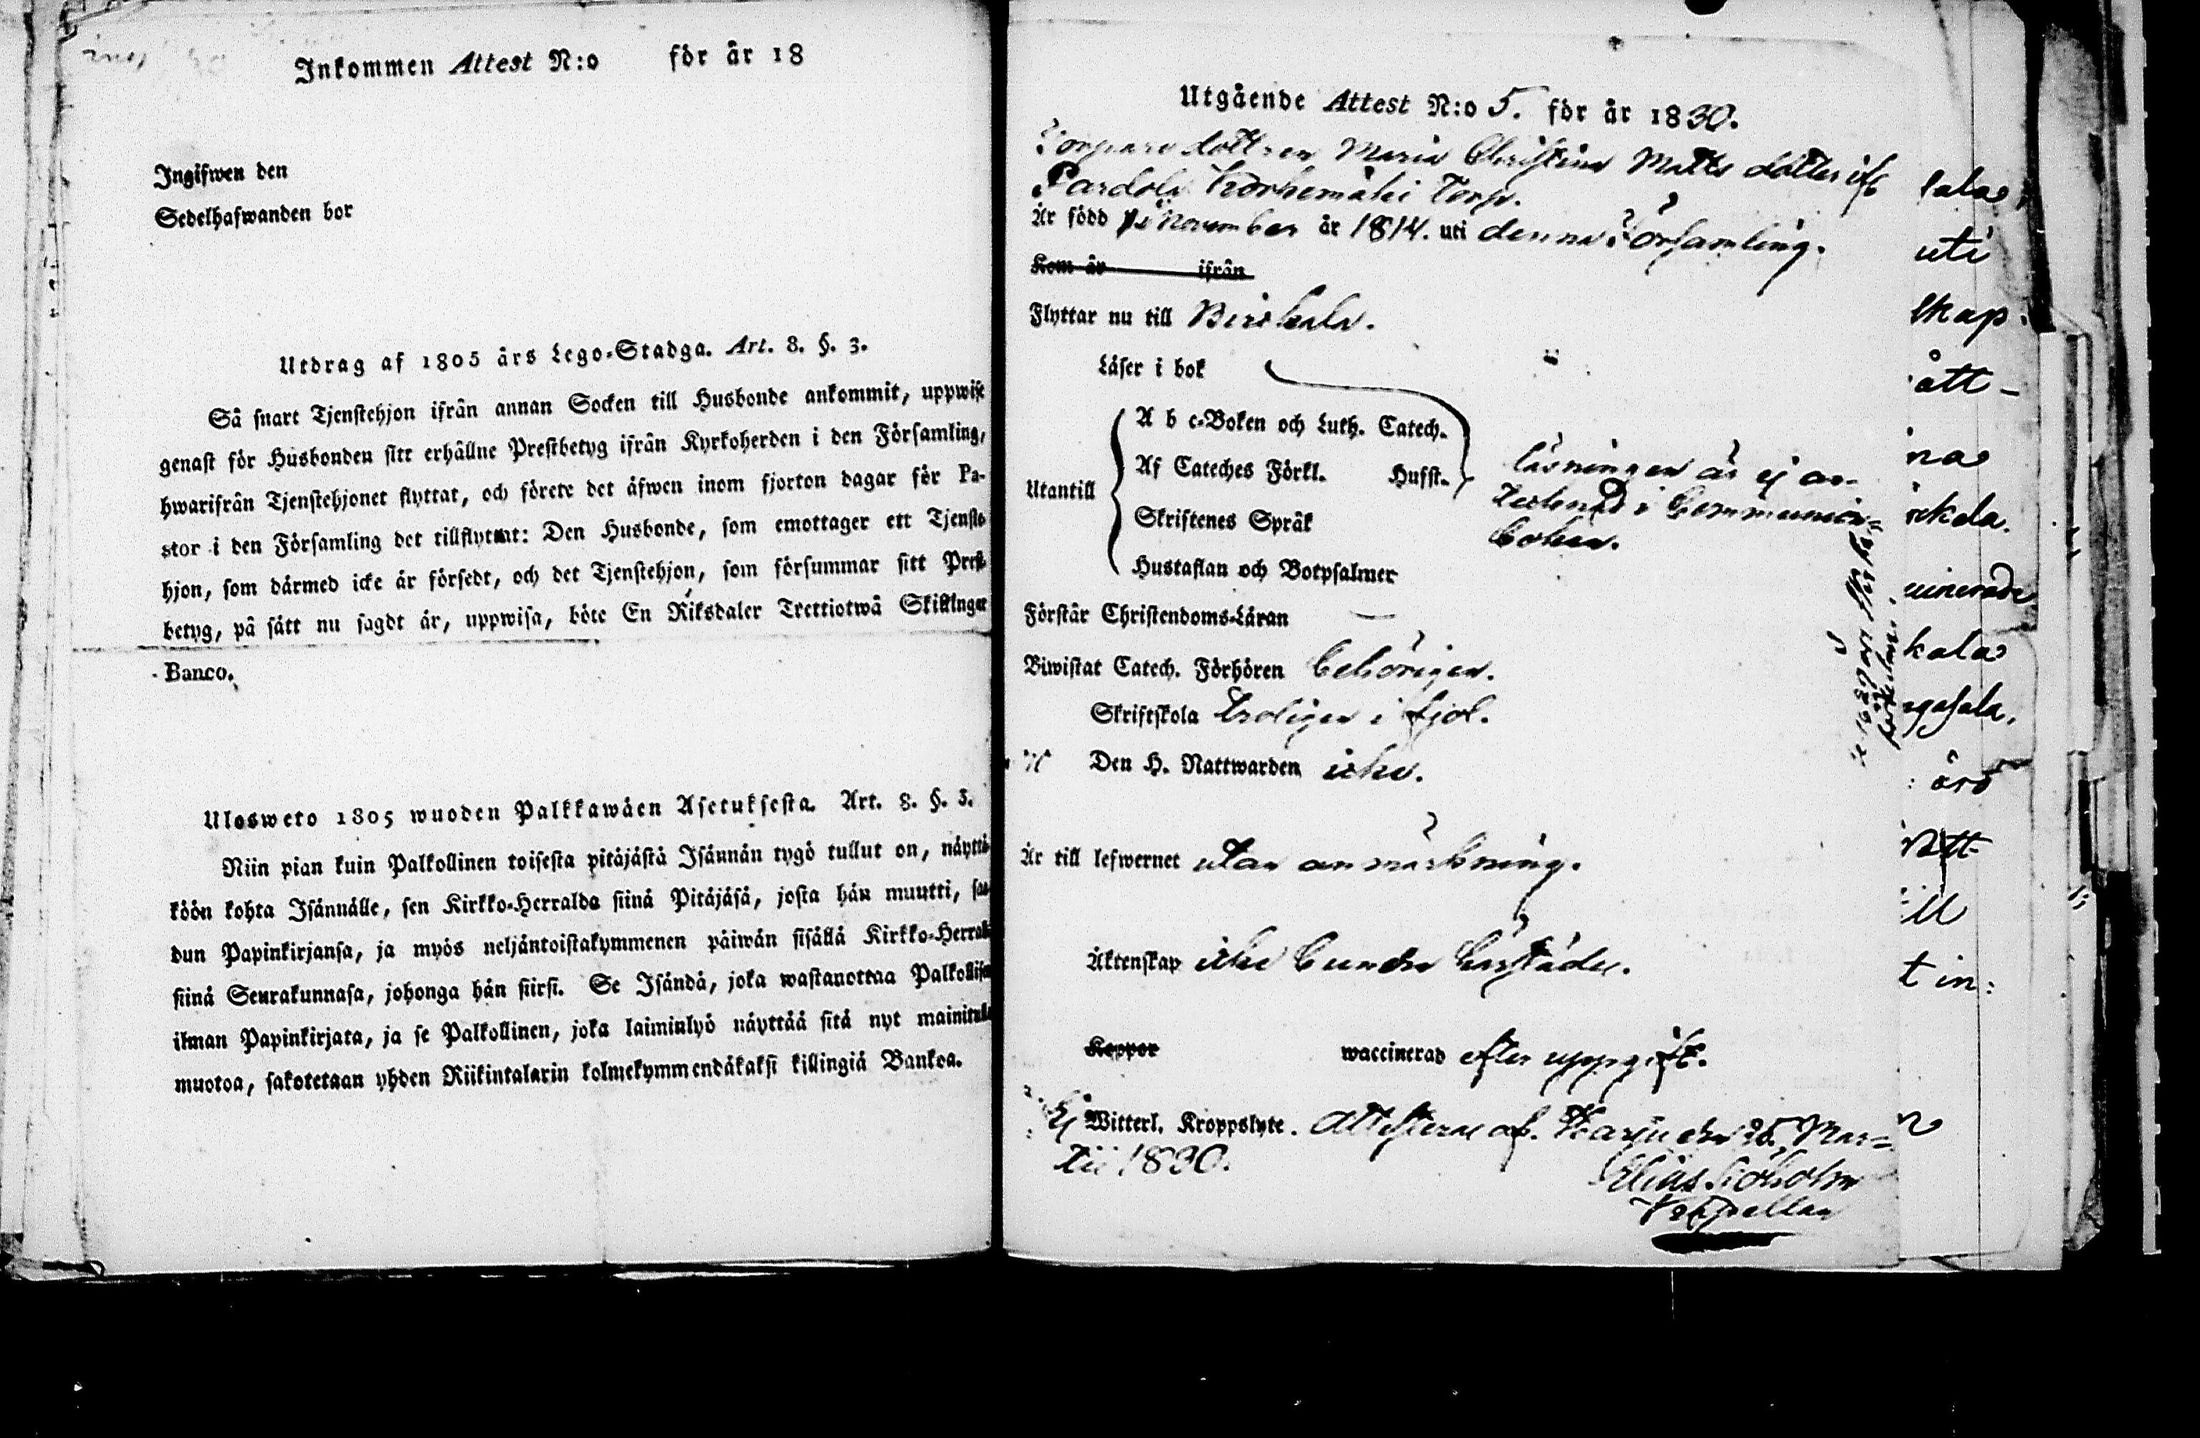 Inkommen Attest N:o för år 18
Ingifwen den
Sedelhafwanden bor
Utdrag af 1805 års Lego-Stadga. Art. 8. §. 3.
Så snart Tjenstehjon ifrån annan Socken till Husbonde ankommit, uppwise
genast för Husbonden sitt erhållne Prestbetyg ifrån Kyrkoherden i den Församling,
hwarifrån Tjenstehjonet flyttat, och förete det äfwen inom fjorton dagar för Pa-
stor i den Församling det tillflyttat: Den Husbonde, som emottager ett Tjenste-
hjon, som därmed icke är försedt, och det Tjenstehjon, som försummar sitt Prest-
betyg, på sätt nu sagdt är, uppwisa, böte En Riksdaler Trettiotwå Skillingar
Banco.
Ulosweto 1805 wuoden Palkkawäen Asetuksesta. Art. 8. §. 3.
Niin pian kuin Palkollinen toisesta pitäjästä Isännän tygö tullut on, näyttä-
köön kohta Isännälle, sen Kirkko-Herralda siinä Pitäjäsä, josta hän muutti, saa-
dun Papinkirjansa, ja myös neljäntoistakymmenen päiwän sisällä Kirkko-Herral
siinä Seurakunnasa, johonga hän siirsi. Se Isändä, joka wastanottaa Palkollise
ilman Papinkirjata, ja se Palkollinen, joka laiminlyö näyttää sitä nyt mainitulla
muotoa, sakotetaan yhden Riikintalarin kolmekymmendäkaksi killingiä Bankoa.
Utgående Attest N:o 5. för år 1830.
Torpare dottren Maria Christina Matts dotter ifr
Pardola Korkemäki Torp.
Är född November år 1814. uti denna Församling.
Kom år ifrån
Flyttar nu till Birkala.
Läser i bok
Utantill
A b c-Boken och Luth. Catech.
Af Cateches Förkl. Hufst.
Skriftenes Språk
Hustaflan och Botpsalmer
läsningen är ej an-
tecknad i Communion-
boken.
Förstår Christendoms-Läran —
Biwistat Catech. Förhören behörigen.
Skriftskola troligen i fjol.
Den H. Nattwarden icke.
Är till lefwernet utan anmärkning.
Äktenskap icke bunden härstädes.
Koppor waccinerad efter uppgift.
Ej Witterl. Kroppslyte. Attesteras af. Karju den 25 Mar-
tii 1830.
Elias Sjöholm
Kapellan
uti
skap.
ått-
na
kala
gasala.
ärd
ill
t in: